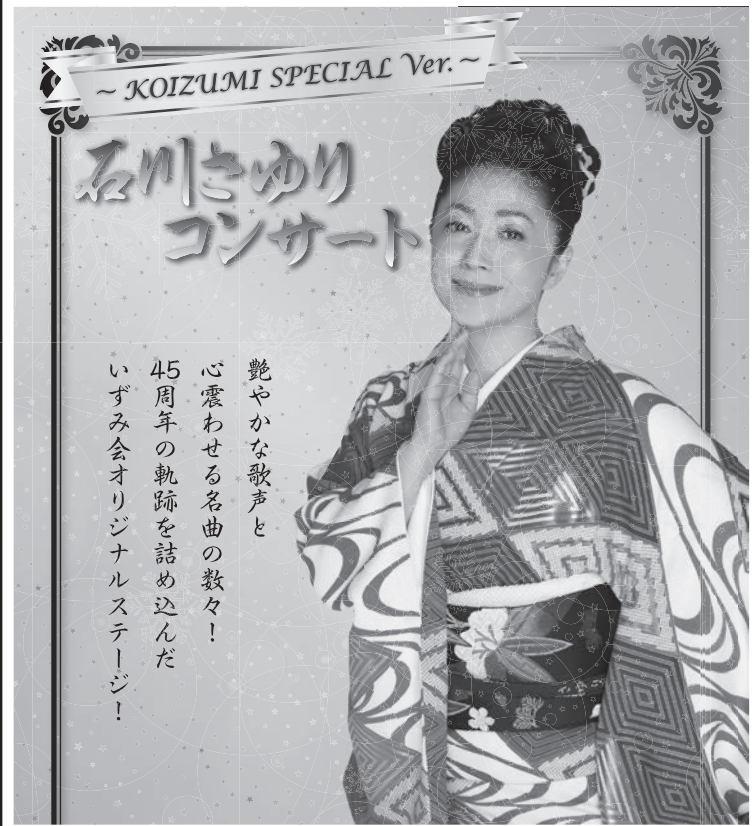 ～ KOIZUMI SPECIAL Ver.～
石川さゆり
コンサート
艶やかな歌声と
心震わせる名曲の数々！
45周年の軌跡を詰め込んだ
いずみ会オリジナルステージ！